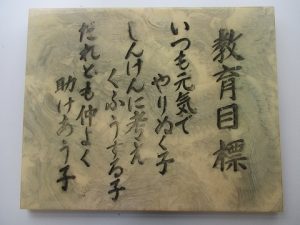 教育目標
いつも元気で
やりぬく子
しんけんに考え
くふうする子
だれとも仲よく
助けあう子